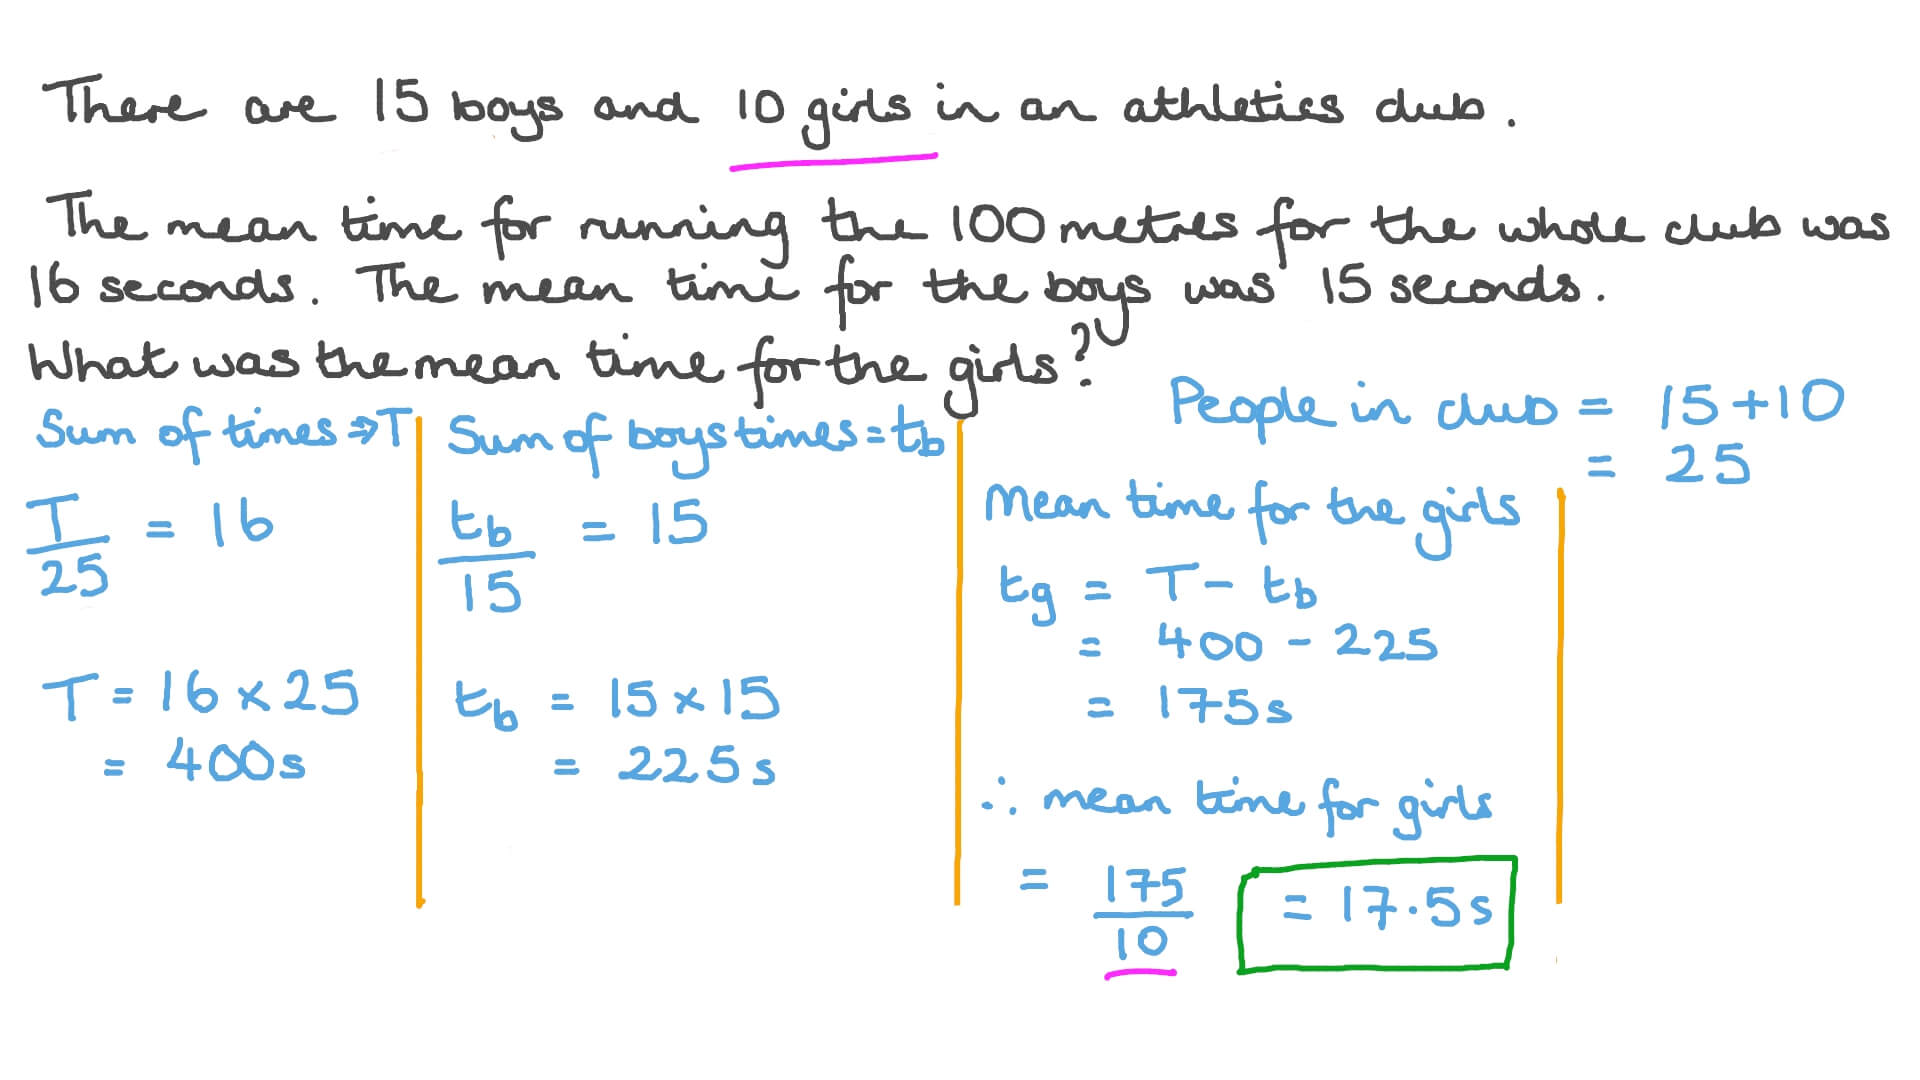 There are 15 boys and 10 girls in an athletics club.
The mean time for running the 100 metres for the whole club was
16 seconds. The mean time for the boys was 15 seconds.
What was the mean time for the girls?
Sum of times ⇒ T
T/25 = 16
T = 16 × 25
= 400s
Sum of boys times = t_b
t_b/15 = 15
t_b = 15 × 15
= 225s
People in club = 15 + 10
= 25
Mean time for the girls
t_g = T - t_b
= 400 - 225
= 175s
∴ mean time for girls
= 175/10 = 17.5s